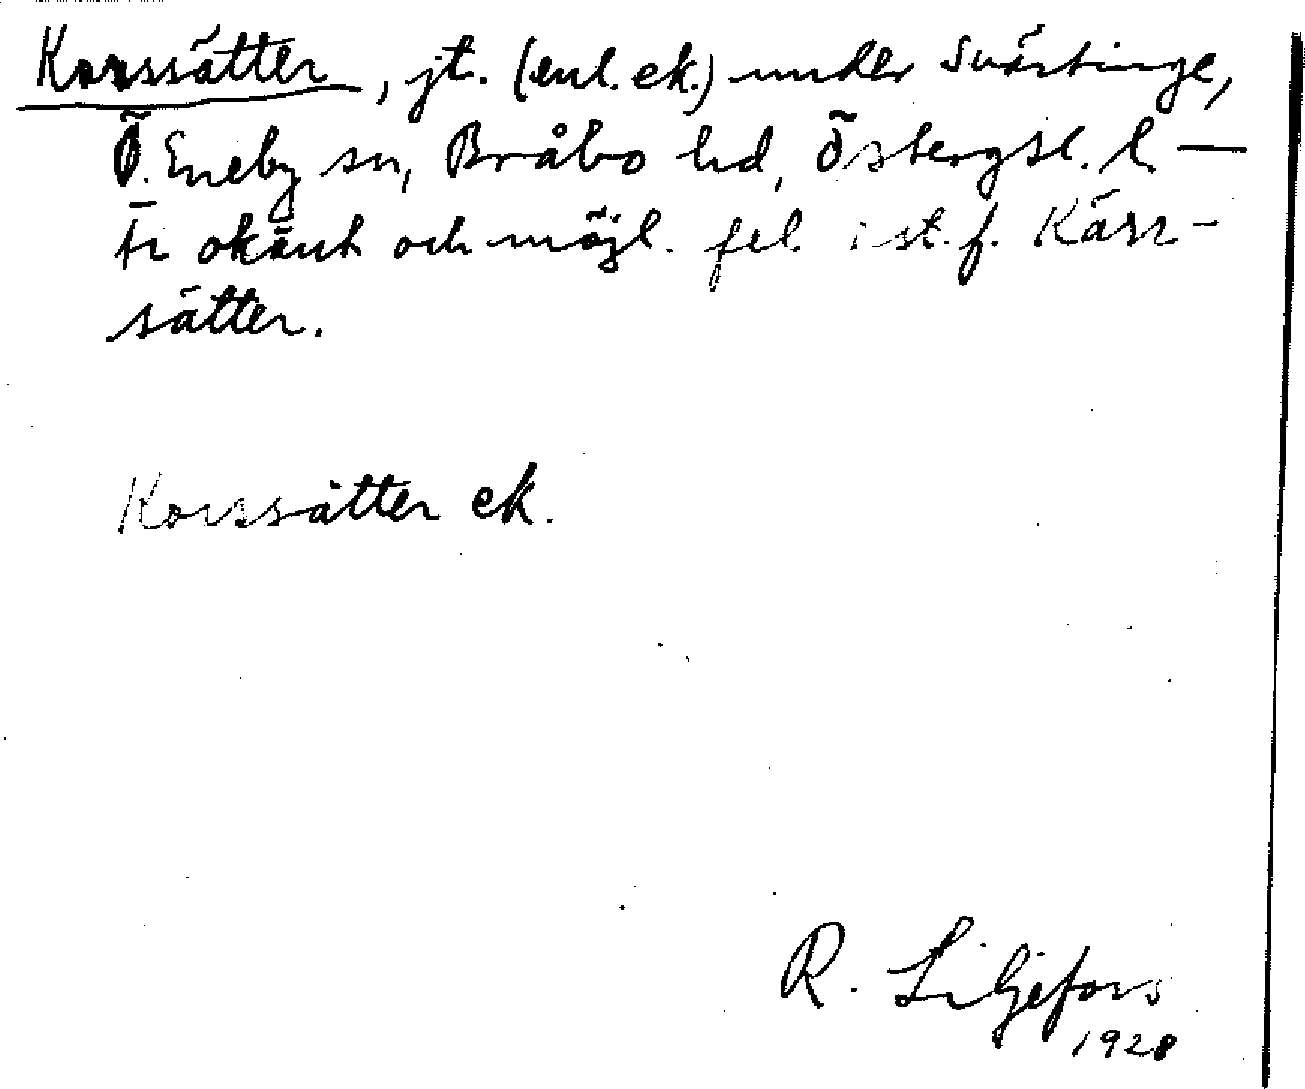 Korssätter, jt. (enl. ek.) under Svärtinge,
Ö. Eneby sn, Bråbo hd, Östergötl. l. —
Är okänt och möjl. fel i st. f. Kärr-
sätter.
Korssätter ek.
R. Liljefors
1928